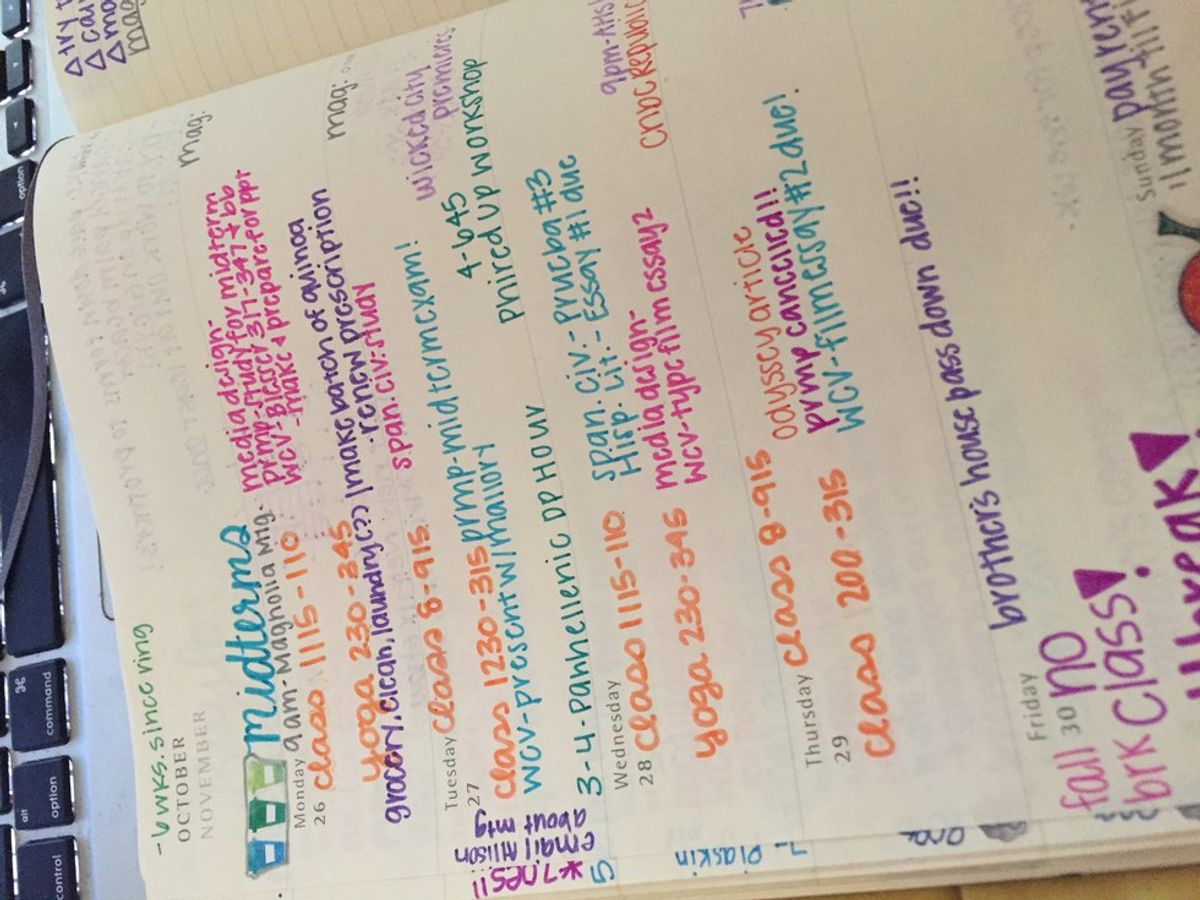 -6wks. since ring
OCTOBER
NOVEMBER
midterms
Monday
26
9am-Magnolia Mtg.
class 1115-110
yoga 230-345
grocery, clean, laundry(??)
media design-
prmp-study for midterm
wcv-Blaser 317-347 + bb
-make + prepare for ppt
make batch of quinoa
·renew prescription
span.civ:study
mag:
mag:
Tuesday
27
class 8-915
class 1230-315
prmp-midterm exam!
wcv-present w/mallory
3-4-Panhellenic DPHOUW
wicked city
premieres
4-645
Phired Up workshop
Wednesday
28
class 1115-110
yoga 230-345
span. civ.- Prueba #3
Hisp. Lit.- Essay #1 due
media design-
wcv-type film essay2
9pm-AHS!
CNBC Republic
Thursday
29
class 8-915
class 200-315
odyssey article
prmp cancelled!!
wcv-film essay #2 due!
brother's house pass down due!!
Friday
30
fall no
brk class!
break!
Sunday
pay rent
email Allison
about mtg
5
Plaskin
option
command
alt
option
control